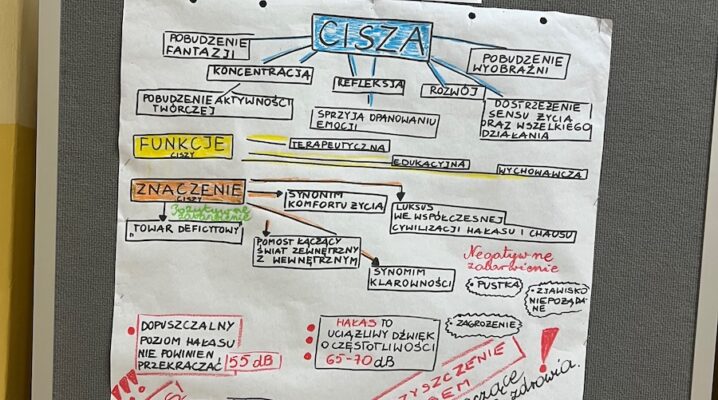 CISZA
POBUDZENIE
FANTAZJI
KONCENTRACJA
REFLEKSJA
ROZWÓJ
POBUDZENIE
WYOBRAŹNI
POBUDZENIE AKTYWNOŚCI
TWÓRCZEJ
SPRZYJA OPANOWANIU
EMOCJI
DOSTRZEŻENIE
SENSU ŻYCIA
ORAZ WSZELKIEGO
DZIAŁANIA
FUNKCJE
CISZY
TERAPEUTYCZNA
EDUKACYJNA
WYCHOWAWCZA
ZNACZENIE
CISZY
Pozytywne
zabarwienie
"TOWAR DEFICYTOWY"
SYNONIM
KOMFORTU ŻYCIA
LUKSUS
WE WSPÓŁCZESNEJ
CYWILIZACJI HAŁASU I CHAOSU
POMOST ŁĄCZĄCY
ŚWIAT ZEWNĘTRZNY
Z WEWNĘTRZNYM
SYNOMIM
KLAROWNOŚCI
Negatywne
zabarwienie
PUSTKA
ZJAWISKO
NIEPOŻĄDA
NE
ZAGROŻENIE
DOPUSZCZALNY
POZIOM HAŁASU
NIE POWINIEN
PRZEKRACZAĆ 55 dB
HAŁAS TO
UCIĄŻLIWY DŹWIĘK
O CZĘSTOTLIWOŚCI
65-70 dB
zdrowia.